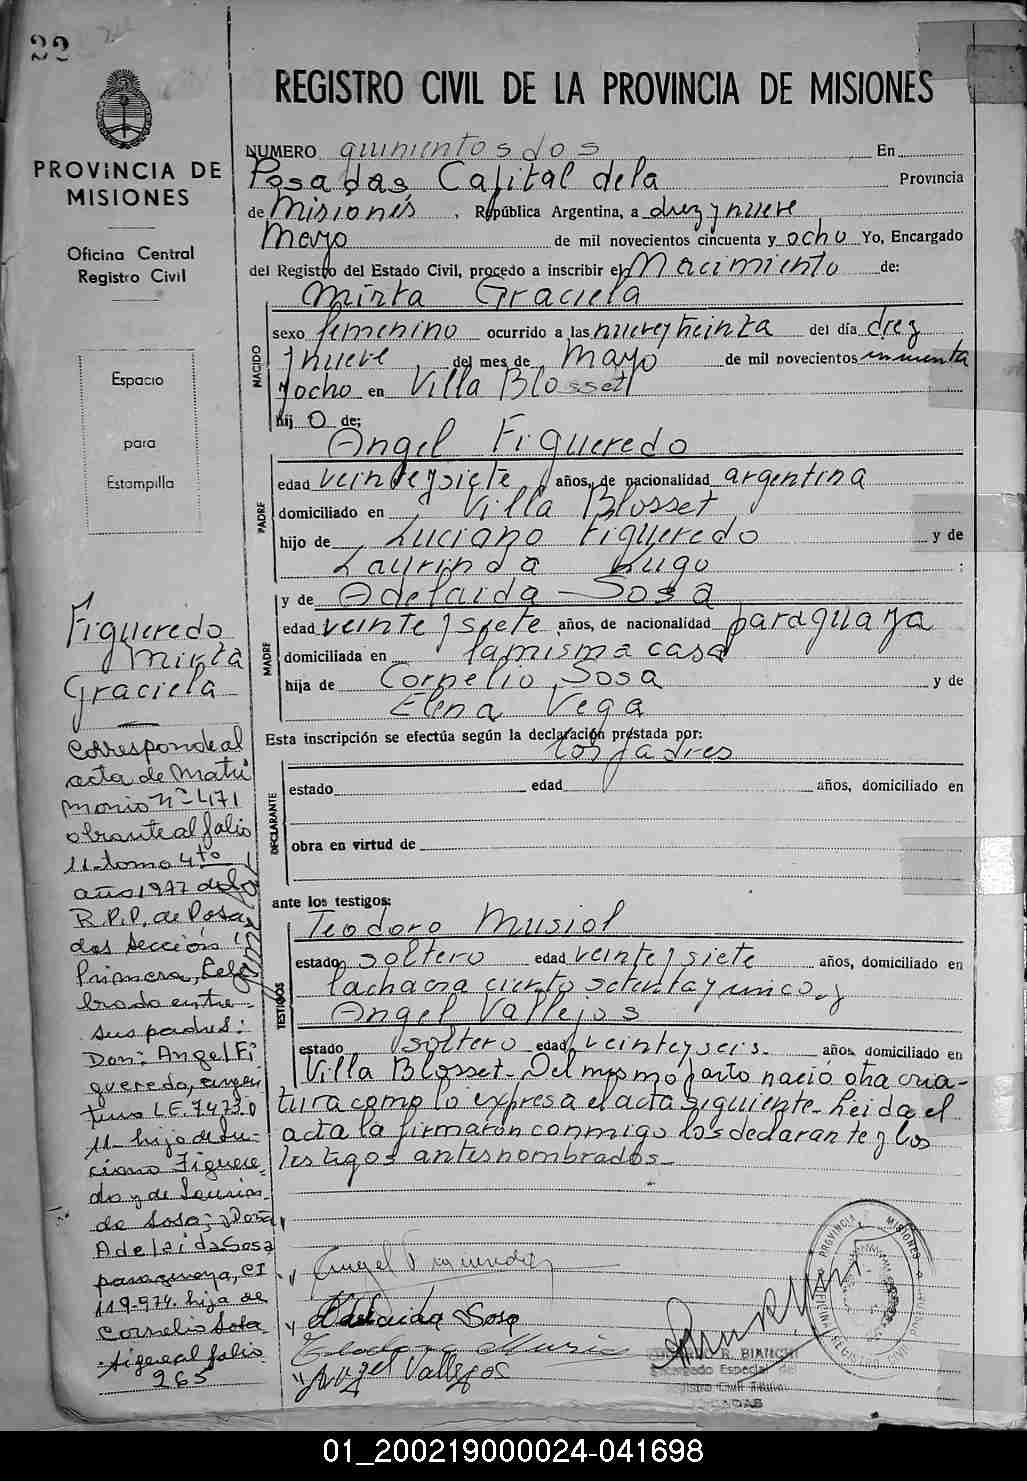 22
REGISTRO CIVIL DE LA PROVINCIA DE MISIONES
PROVINCIA DE
MISIONES
Oficina Central
Registro Civil
Espacio
para
Estampilla
NUMERO quinientos dos En
Posadas Capital dela Provincia
de Misiones, República Argentina, a diez y nueve
Mayo de mil novecientos cincuenta y ocho Yo, Encargado
del Registro del Estado Civil, procedo a inscribir el Nacimiento de:
Mirta Graciela
NACIDO
sexo femenino ocurrido a las nueve y treinta del día diez
y nueve del mes de Mayo de mil novecientos cincuenta
y ocho en Villa Blosset
hij o de:
Angel Figueredo
PADRE
edad veinte y siete años, de nacionalidad argentina
domiciliado en Villa Blosset
hijo de Luciano Figueredo y de
Laurinda Lugo ;
y de Adelaida Sosa
MADRE
edad veinte y siete años, de nacionalidad paraguaya
domiciliada en la misma casa
hija de Cornelio Sosa y de
Elena Vega
Esta inscripción se efectúa según la declaración prestada por:
los padres
DECLARANTE
estado edad años, domiciliado en
obra en virtud de
ante los testigos:
Teodoro Musiol
TESTIGOS
estado soltero edad veinte y siete años, domiciliado en
la chacra ciento setenta y unico y
Angel Vallejos
estado soltero edad veinte y seis años, domiciliado en
Villa Blosset - Del mismo parto nació otra cria-
tura como lo expresa el acta siguiente - Leida el
acta la firmaron conmigo los declarante y los
testigos antes nombrados -
Figueredo
Mirta
Graciela
Corresponde al
acta de Matri
monio nº 471
obrante al folio
11 - tomo 4to
año 1977 del
R.P.P. de Posa
das Sección
Primera, Cele
brado entre
sus padres:
Don: Angel Fi
gueredo, argen
tino L.E. 7.473.0
11 - hijo de Lu-
ciano Figuere-
do y de Laurin-
da Sosa; y Doña
Adelaida Sosa
paraguaya, CI
119.974. hija de
Cornelio Sosa
sigue al folio
265
Angel Figueredo
Adelaida Sosa
Teodoro Musiol
Angel Vallejos
PROVINCIA MISIONES
R. BIANCHI
Encargado Especial del
Registro Civil
POSADAS
01_200219000024-041698